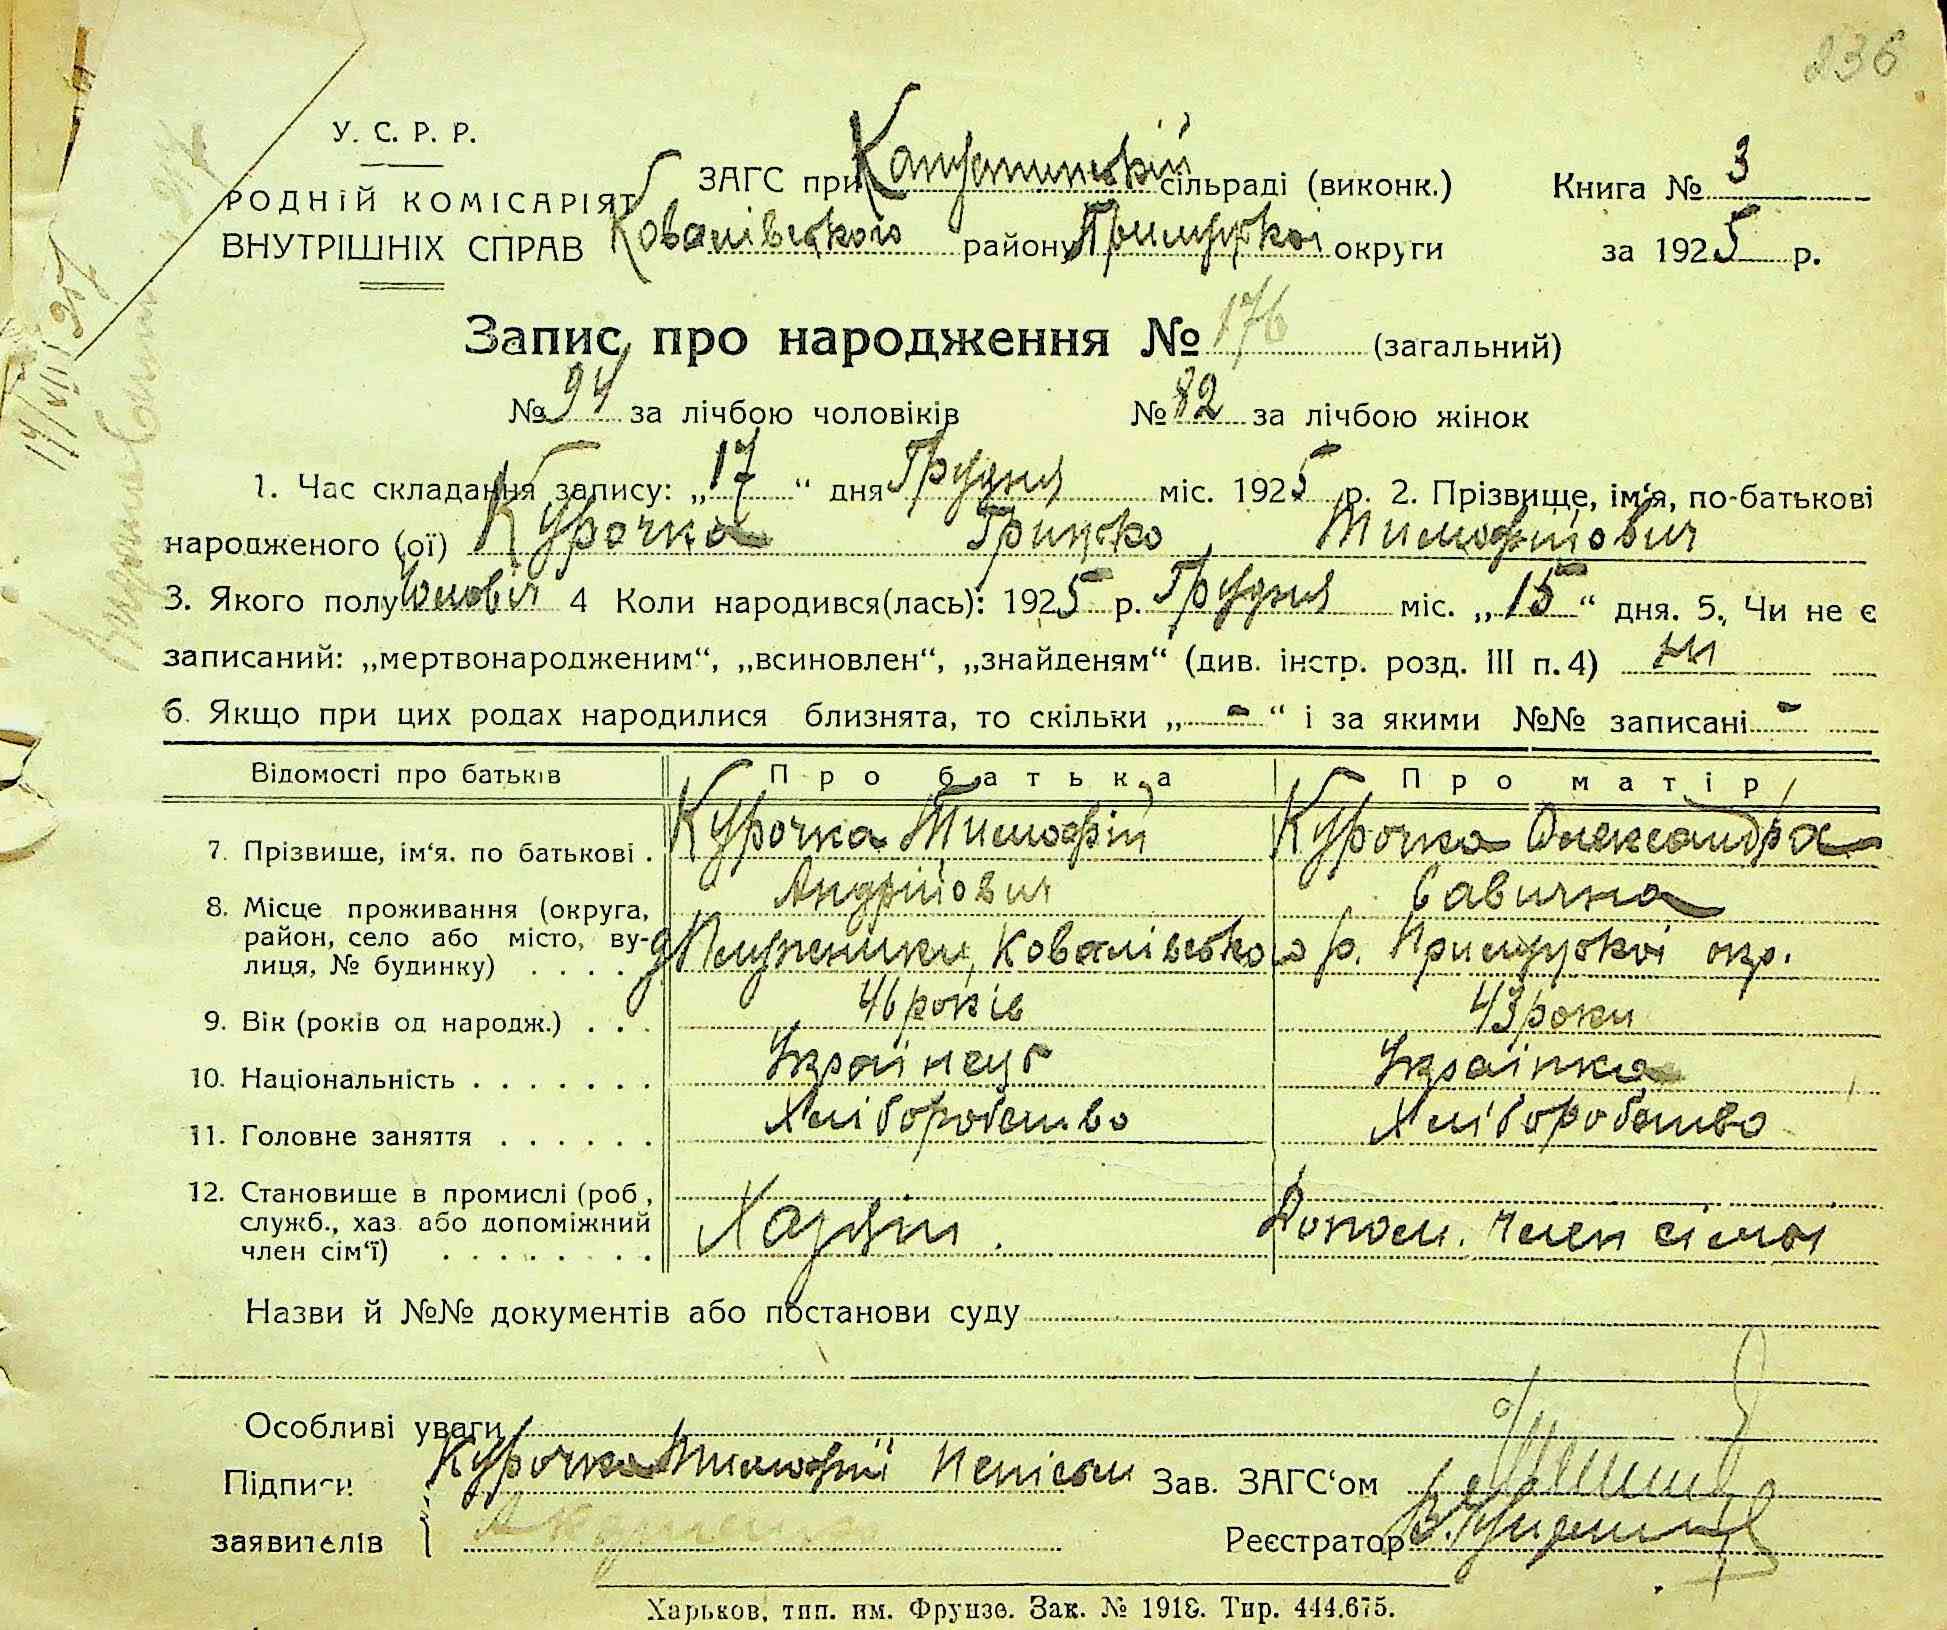 236
У. С. Р. Р.
РОДНІЙ КОМІСАРІЯТ
ВНУТРІШНІХ СПРАВ
ЗАГС при Капустинській сільраді (виконк.)
Ковалівського району Прилуцкої округи
Книга № 3
за 1925 р.
Запис про народження № 176 (загальний)
№ 94 за лічбою чоловіків № 82 за лічбою жінок
1. Час складання запису: „17“ дня Грудня міс. 1925 р. 2. Прізвище, ім‘я, по-батькові
народженого (ої) Курочка Грицько Тимофійович
3. Якого полу Чоловіч 4 Коли народився(лась): 1925 р. Грудня міс. „15“ дня. 5. Чи не є
записаний: „мертвонародженим“, „всиновлен“, „знайденям“ (див. інстр. розд. III п. 4) ні
6. Якщо при цих родах народилися близнята, то скільки „-“ і за якими №№ записані -
Відомості про батьків Про батька Про матір
7. Прізвище, ім‘я. по батькові . Курочка Тимофій Курочка Олександра
Андрійович Савична
8. Місце проживання (округа,
район, село або місто, ву-
лиця, № будинку) . . . . Ковалівського р. Прилуцкої окр.
9. Вік (років од народж.) . . . 46 років 43 роки
10. Національність . . . . . . . Українець Українка
11. Головне заняття . . . . . . Хліборобство Хліборобство
12. Становище в промислі (роб.,
служб., хаз. або допоміжний
член сім‘ї) . . . . . . . . Хазяїн. Допом. член сімої
Назви й №№ документів або постанови суду
Особливі уваги
Підписи Курочка Тимофій Неписьм Зав. ЗАГС‘ом
заявителів Реєстратор
Харьков, тип. им. Фрунзе. Зак. № 1918. Тир. 444.675.